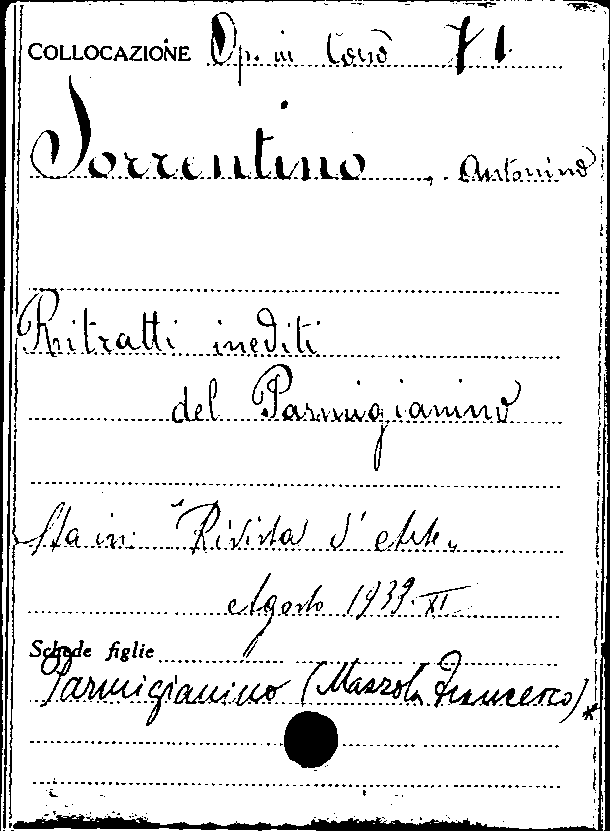 COLLOCAZIONE Op. in Corso 71.
Sorrentino, Antonino
Ritratti inediti
del Parmigianino
Sta in: "Rivista d'Arte„
Agosto 1933. XI
Schede figlie
Parmigianino (Mazzola Francesco)*